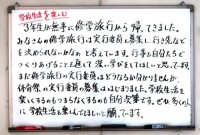 学校生活を楽しむ
3年生が無事に修学旅行から帰ってきました。
みなさんの修学旅行は実行委員を募集し、行き先など
を決められないかなぁと考えています。行事を自分たちで
つくりあげることを通して深く学びをしてほしいと思っています。
まだ修学旅行の実行委員はどうなるか分かりませんが、
体育祭の実行委員の募集ははじまります。学校生活を
楽しくするのもつまらなくするのも自分次第です。ぜひ多くの人
に学校を楽しんでほしいと願ってます。